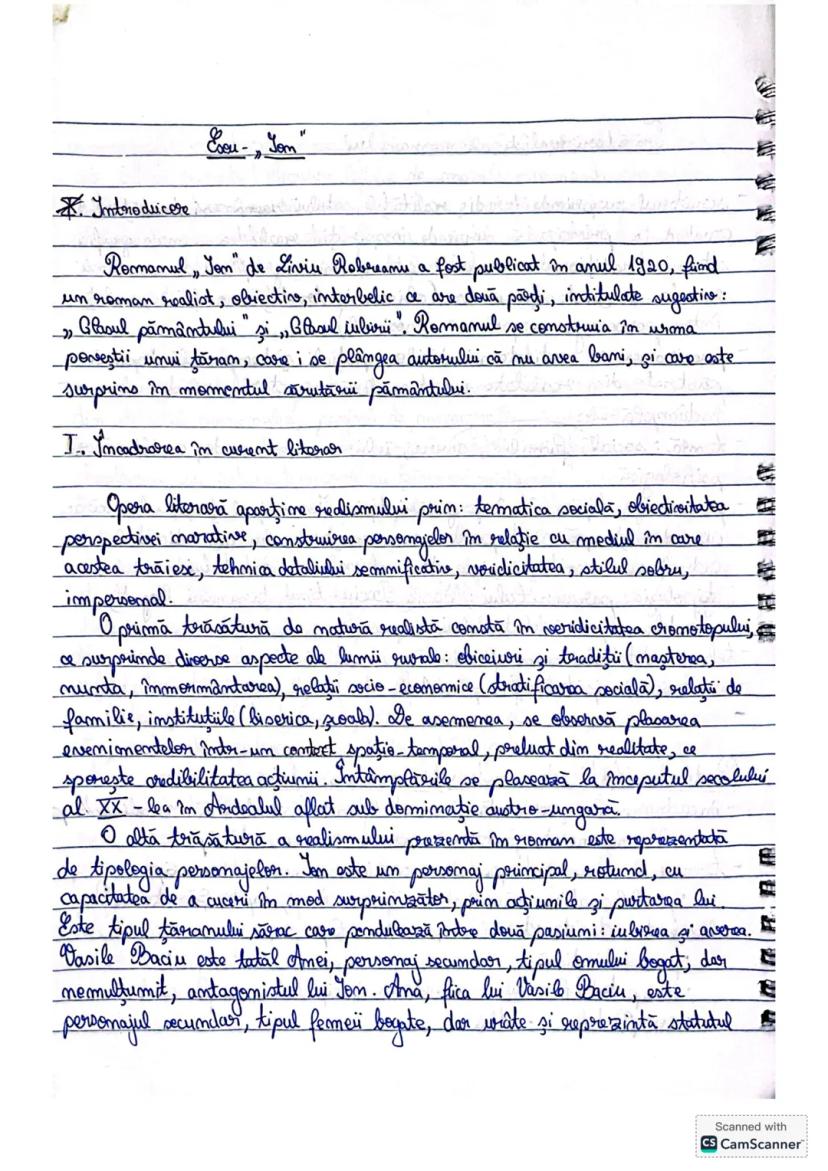 Eseu - „Ion"
I. Introducere
Romanul „Ion" de Liviu Rebreanu a fost publicat în anul 1920, fiind
un roman realist, obiectiv, interbelic ce are două părți, intitulate sugestiv:
„Glasul pământului" și „Glasul iubirii". Romanul se construia în urma
poveștii unui țăran, care i se plângea autorului că nu avea bani, și care este
surprins în momentul sărutării pământului.
I. Încadrarea în curent literar
Opera literară aparține realismului prin: tematica socială, obiectivitatea
perspectivei narative, construirea personajelor în relație cu mediul în care
acestea trăiesc, tehnica detaliului semnificativ, veridicitatea, stilul sobru,
impersonal.
O primă trăsătură de natură realistă constă în veridicitatea cronotopului,
ce surprinde diverse aspecte ale lumii rurale: obiceiuri și tradiții (nașterea,
nunta, înmormântarea), relații socio-economice (stratificarea socială), relații de
familie, instituțiile (biserica, școala). De asemenea, se observă plasarea
evenimentelor într-un context spațio-temporal, preluat din realitate, ce
sporește credibilitatea acțiunii. Întâmplările se plasează la începutul secolului
al XX-lea în Ardealul aflat sub dominație austro-ungară.
O altă trăsătură a realismului prezentă în roman este reprezentată
de tipologia personajelor. Ion este un personaj principal, rotund, cu
capacitatea de a cuceri în mod surprinzător, prin acțiunile și purtarea lui.
Este tipul țăranului sărac care pendulează între două pasiuni: iubirea și averea.
Vasile Baciu este tatăl Anei, personaj secundar, tipul omului bogat, dar
nemulțumit, antagonistul lui Ion. Ana, fiica lui Vasile Baciu, este
personajul secundar, tipul femeii bogate, dar urâte și reprezintă statutul
Scanned with
CS CamScanner